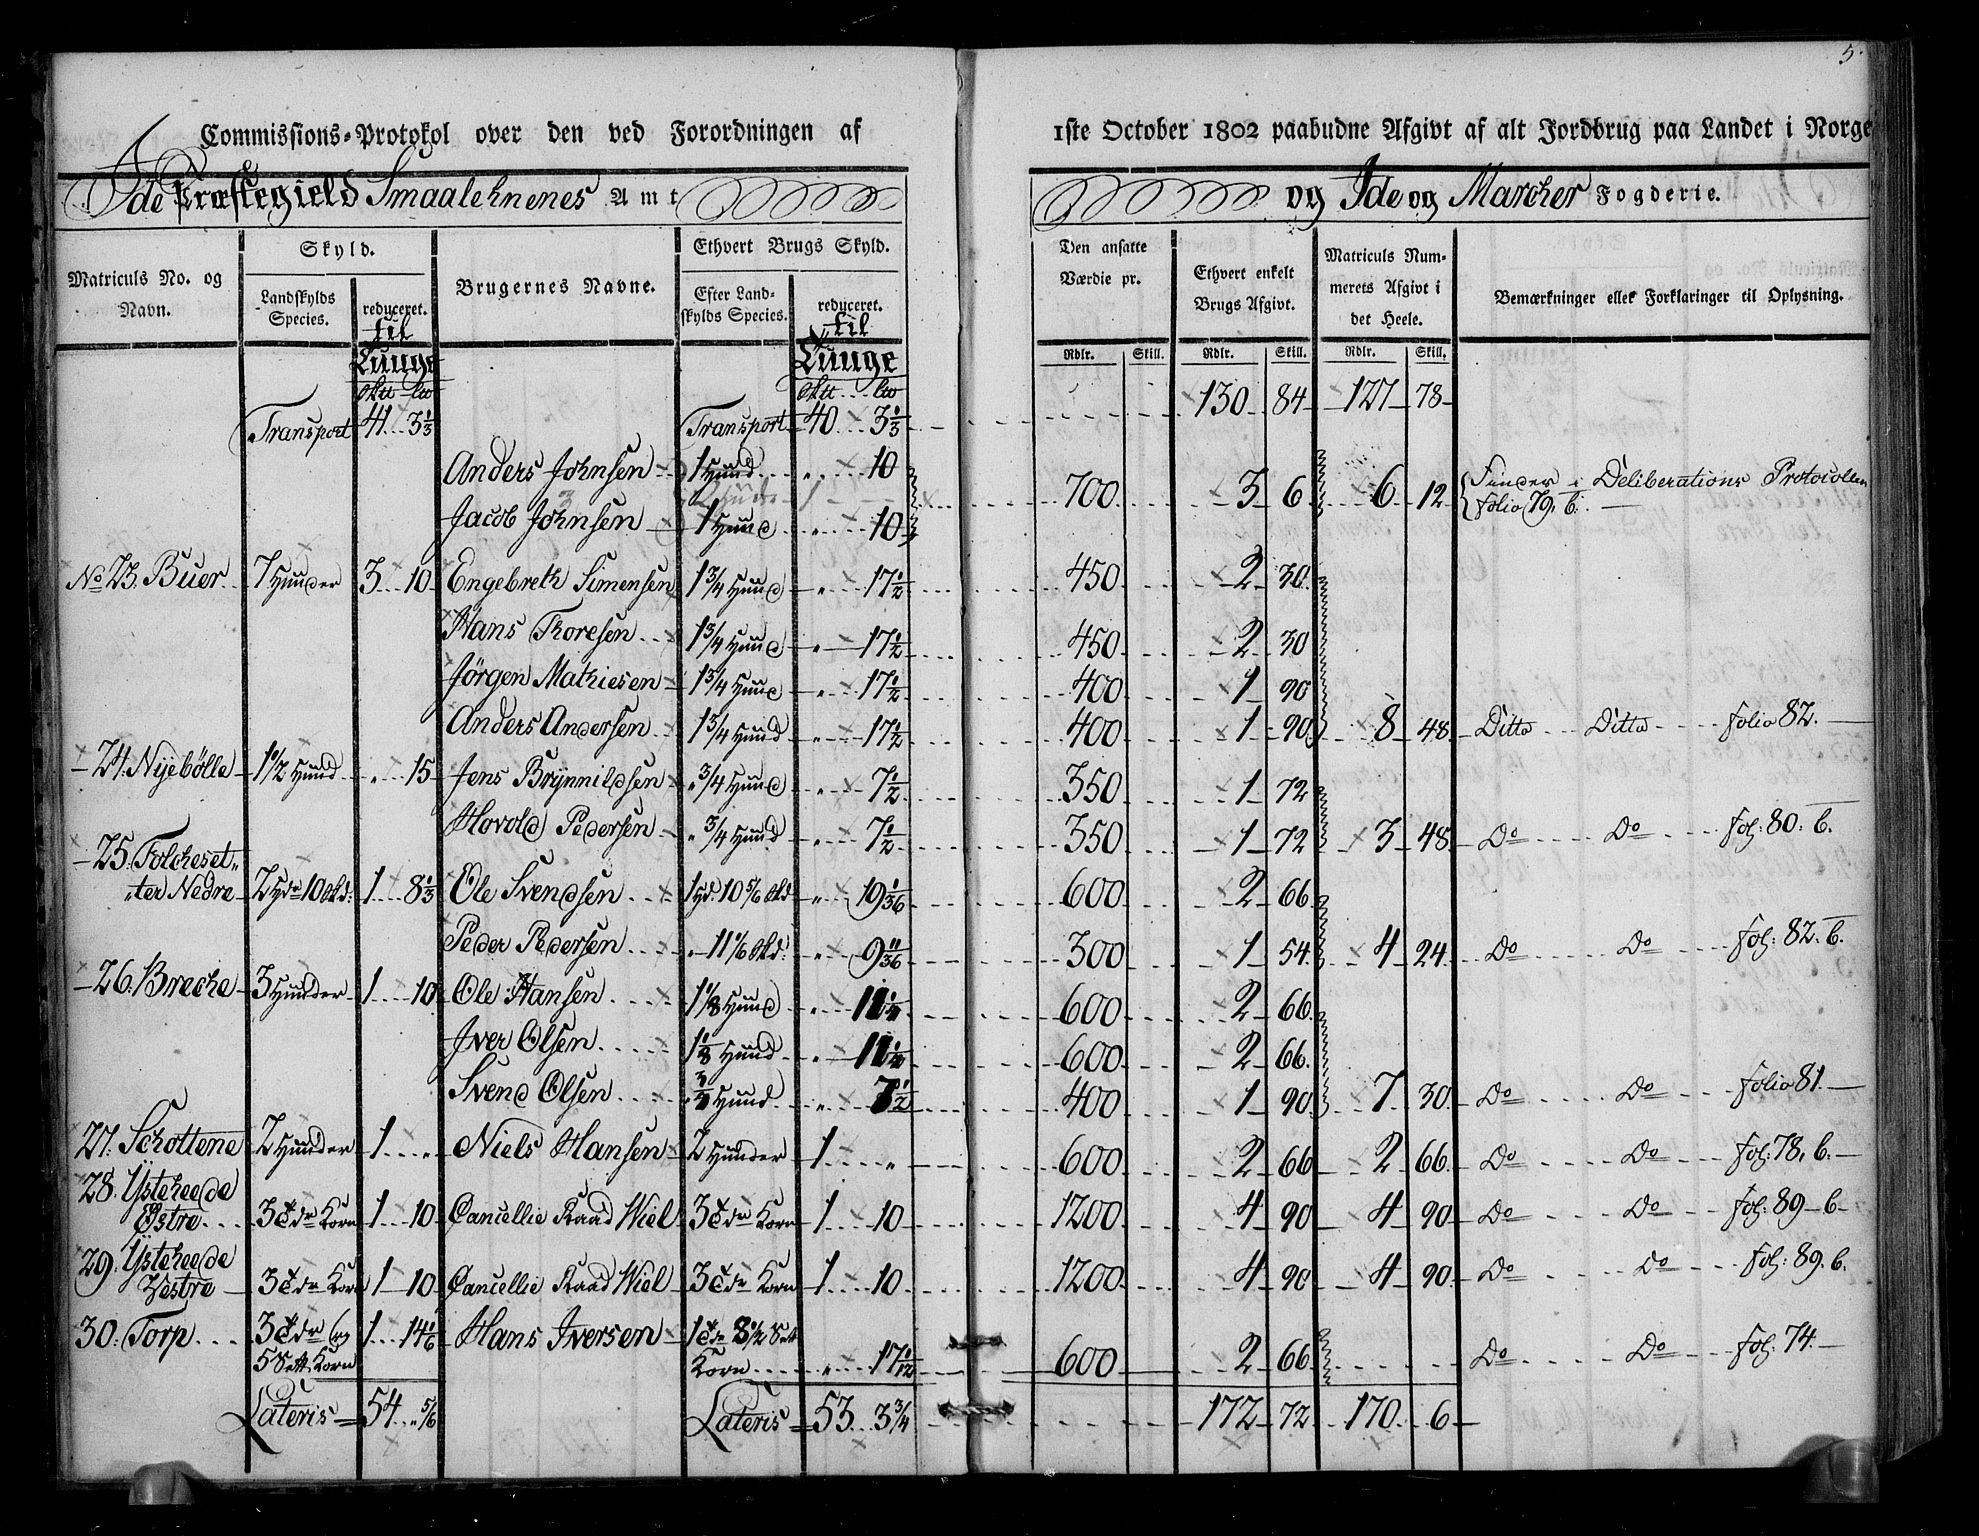 5.
Commissions-Protokol over den ved Forordningen af 1ste October 1802 paabudne Afgivt af alt Jordbrug paa Landet i Norge
Ide Præstegield Smaalehnenes Amt og Ide og Marcher Fogderie.
Matriculs No. og Navn. | Skyld. | Brugernes Navne. | Ethvert Brugs Skyld. | Den ansatte Værdie pr. | Ethvert enkelt Brugs Afgivt. | Matriculs Nummerets Afgivt i det Heele. | Bemærkninger eller Forklaringer til Oplysning.
Landskylds Species. | reduceret. til Tunge | Efter Landskylds Species. | reduceret. til Tunge
Rdlr. | Skill. | Rdlr. | Skill. | Rdlr. | Skill.
Transport 41 3 1/3 | Transport 40 3 1/3 | 130 84 | 127 78
Anders Johnsen | 1 Hund | „ 10
700 | 3 6 | 6 12 | Findes i Deliberations Protocollen folio 79, b.
Jacob Johnsen | 1 Hund | „ 10
No 23. Buer | 7 Hunder | 3 10 | Engebreth Simensen | 1 3/4 Hund | „ 17 1/2 | 450 | 2 30
Hans Thoresen | 1 3/4 Hund | „ 17 1/2 | 450 | 2 30
Jörgen Mathiesen | 1 3/4 Hund | „ 17 1/2 | 400 | 1 90
Anders Andersen | 1 3/4 Hund | „ 17 1/2 | 400 | 1 90 | 8 48 | Ditto Ditto folio 82.
24. Nyebölle | 1 1/2 Hund | „ 15 | Jens Brynnildsen | „ 3/4 Hund | „ 7 1/2 | 350 | 1 72
Hovold Pedersen | „ 3/4 Hund | „ 7 1/2 | 350 | 1 72 | 3 48 | Do Do fol: 80. b.
25. Folcheset„
„ter Nedre | 2 Hdr 10 | 1 8 1/3 | Ole Svendsen | 1 Hd. 10 5/6 | „ 19 1/36 | 600 | 2 66
Peder Pedersen | „ 11 1/6 | „ 9 11/36 | 300 | 1 54 | 4 24 | Do Do fol: 82. b.
26. Breche | 3 Hunder | 1 10 | Ole Hansen | 1 1/8 Hund | „ 11 1/4 | 600 | 2 66
Iver Olsen | 1 1/8 Hund | „ 11 1/4 | 600 | 2 66
Svend Olsen | „ 3/4 Hund | „ 7 1/2 | 400 | 1 90 | 7 30 | Do Do folio 81.
27. Schottene | 2 Hunder | 1 „ | Niels Hansen | 2 Hunder | 1 „ | 600 | 2 66 | 2 66 | Do Do fol: 78, b.
28. Ysteheede
Østre | 3 Tdr Korn | 1 10 | Cancellie Raad Wiel | 3 Tdr Korn | 1 10 | 1200 | 4 90 | 4 90 | Do Do fol: 89 b
29. Ysteheede
Vestre | 3 Tdr Korn | 1 10 | Cancellie Raad Wiel | 3 Tdr Korn | 1 10 | 1200 | 4 90 | 4 90 | Do Do fol: 89. b.
30. Torp | 3 Tdr og | 1 14 1/6 | Hans Iversen | 1 Tde 8 1/2 Sett
5 Sett Korn | Korn | „ 17 1/12 | 600 | 2 66 | Do Do fol: 74.
Lateris 54 „ 5/6 | Lateris 53 3 3/4 | 172 72 | 170 6